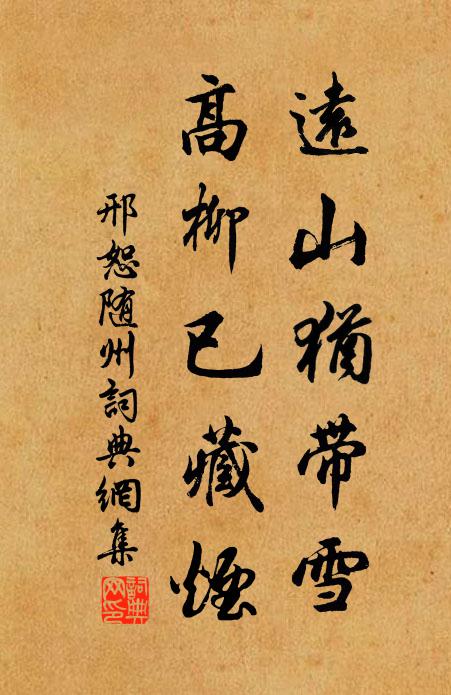 遠山猶帶雪
高柳已藏煙
邢恕随州詞典網集
詞典網印